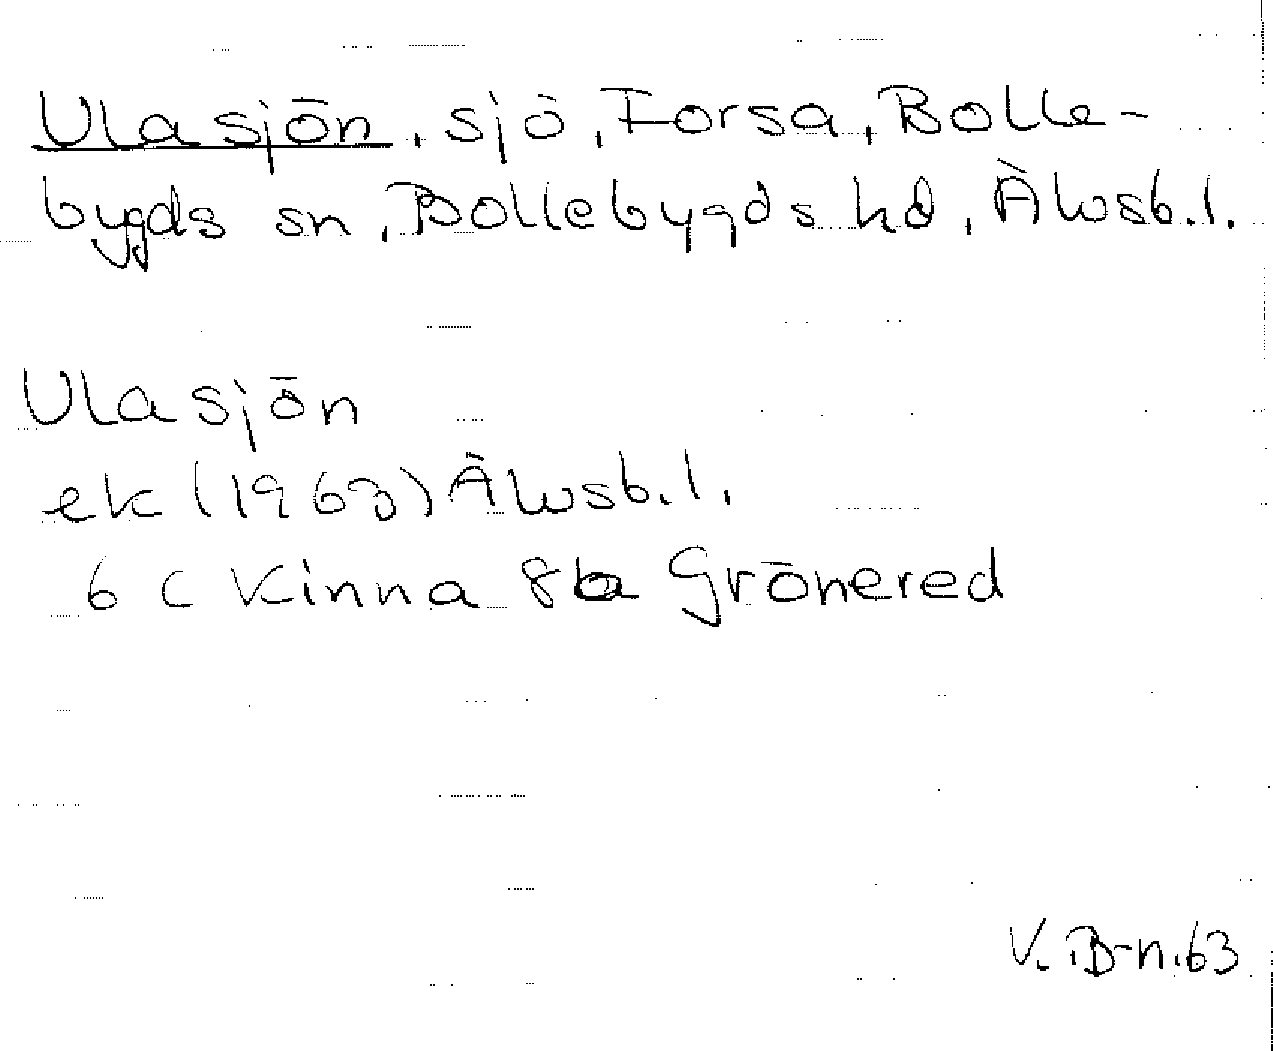 Ulasjön, sjö, Forsa, Bolle-
bygds sn, Bollebygds hd, Älvsb.l.
Ulasjön
ek (1963) Älvsb.l.
6 C Kinna 8 a Grönered
V. B-n.63